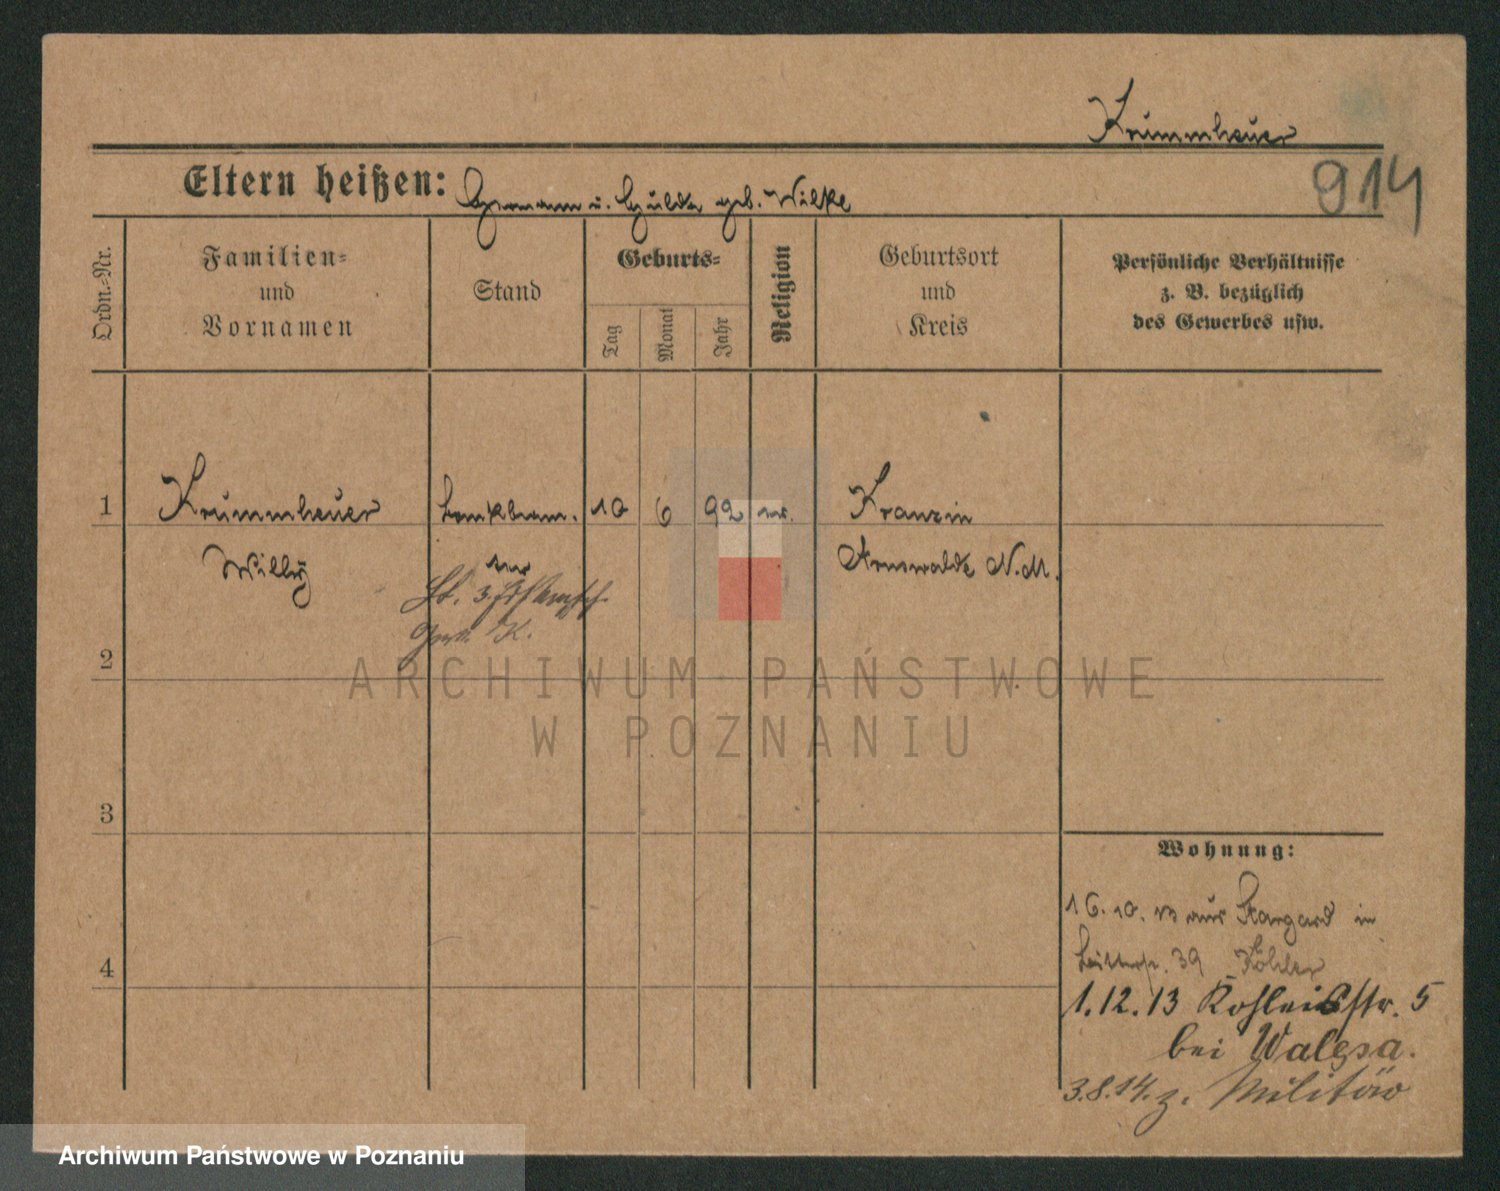 Krummheuer
914
Eltern heißen: Hermann u. Hulda geb. Wilke
Ordn.-Nr.
Familien-
und
Vornamen
Stand
Geburts-
Tag
Monat
Jahr
Religion
Geburtsort
und
Kreis
Persönliche Verhältnisse
z. B. bezüglich
des Gewerbes usw.
1
Krummheuer
Bankbeam.
10
6
92
ev.
Kranzin
Willy
ter
Arnswalde N.M.
2
ARCHIWUM PAŃSTWOWE
W POZNANIU
3
Wohnung:
16.10.13 aus Stargard in
39 Köhler
4
1.12.13 Kohleisstr. 5
bei Walesa.
3.8.14. z. Militär
Archiwum Państwowe w Poznaniu